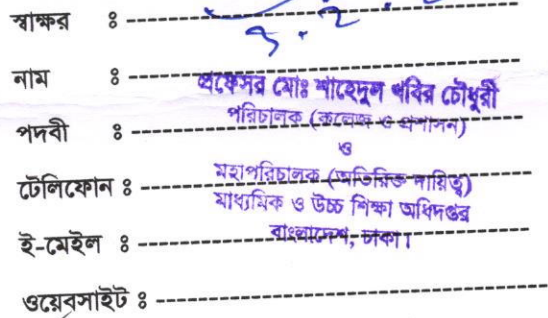 স্বাক্ষর ঃ
নাম ঃ প্রফেসর মোঃ শাহেদুল খবির চৌধুরী
পদবী ঃ পরিচালক (কলেজ ও প্রশাসন)
ও
টেলিফোন ঃ মহাপরিচালক (অতিরিক্ত দায়িত্ব)
মাধ্যমিক ও উচ্চ শিক্ষা অধিদপ্তর
ই-মেইল ঃ বাংলাদেশ, ঢাকা।
ওয়েবসাইট ঃ